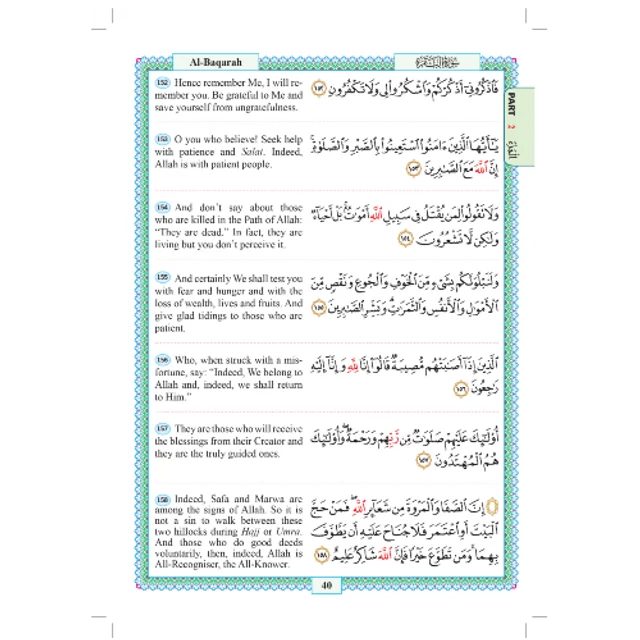 Al-Baqurah
سورة البقرة
152 Hence remember Me, I will re-
member you. Be grateful to Me and
save yourself from ungratefulness.
فَاذْكُرُونِي أَذْكُرْكُمْ وَاشْكُرُوا لِي وَلَا تَكْفُرُونِ ١٥٢
153 O you who believe! Seek help
with patience and Salat. Indeed,
Allah is with patient people.
يَا أَيُّهَا الَّذِينَ ءَامَنُوا اسْتَعِينُوا بِالصَّبْرِ وَالصَّلَوٰةِ
إِنَّ اللَّهَ مَعَ الصَّابِرِينَ ١٥٣
154 And don't say about those
who are killed in the Path of Allah:
“They are dead.” In fact, they are
living but you don't perceive it.
وَلَا تَقُولُوا لِمَن يُقْتَلُ فِي سَبِيلِ اللَّهِ أَمْوَاتٌ بَلْ أَحْيَاءٌ
وَلَٰكِن لَّا تَشْعُرُونَ ١٥٤
155 And certainly We shall test you
with fear and hunger and with the
loss of wealth, lives and fruits. And
give glad tidings to those who are
patient.
وَلَنَبْلُوَنَّكُم بِشَيْءٍ مِّنَ الْخَوْفِ وَالْجُوعِ وَنَقْصٍ مِّنَ
الْأَمْوَالِ وَالْأَنفُسِ وَالثَّمَرَاتِ وَبَشِّرِ الصَّابِرِينَ ١٥٥
156 Who, when struck with a mis-
fortune, say: “Indeed, We belong to
Allah and, indeed, we shall return
to Him.”
الَّذِينَ إِذَا أَصَابَتْهُم مُّصِيبَةٌ قَالُوا إِنَّا لِلَّهِ وَإِنَّا إِلَيْهِ
رَاجِعُونَ ١٥٦
157 They are those who will receive
the blessings from their Creator and
they are the truly guided ones.
أُولَٰئِكَ عَلَيْهِمْ صَلَوَاتٌ مِّن رَّبِّهِمْ وَرَحْمَةٌ وَأُولَٰئِكَ
هُمُ الْمُهْتَدُونَ ١٥٧
158 Indeed, Safa and Marwa are
among the signs of Allah. So it is
not a sin to walk between these
two hillocks during Hajj or Umra.
And those who do good deeds
voluntarily, then, indeed, Allah is
All-Recogniser, the All-Knower.
إِنَّ الصَّفَا وَالْمَرْوَةَ مِن شَعَائِرِ اللَّهِ فَمَنْ حَجَّ
الْبَيْتَ أَوِ اعْتَمَرَ فَلَا جُنَاحَ عَلَيْهِ أَن يَطَّوَّفَ
بِهِمَا وَمَن تَطَوَّعَ خَيْرًا فَإِنَّ اللَّهَ شَاكِرٌ عَلِيمٌ ١٥٨
PART 2
40